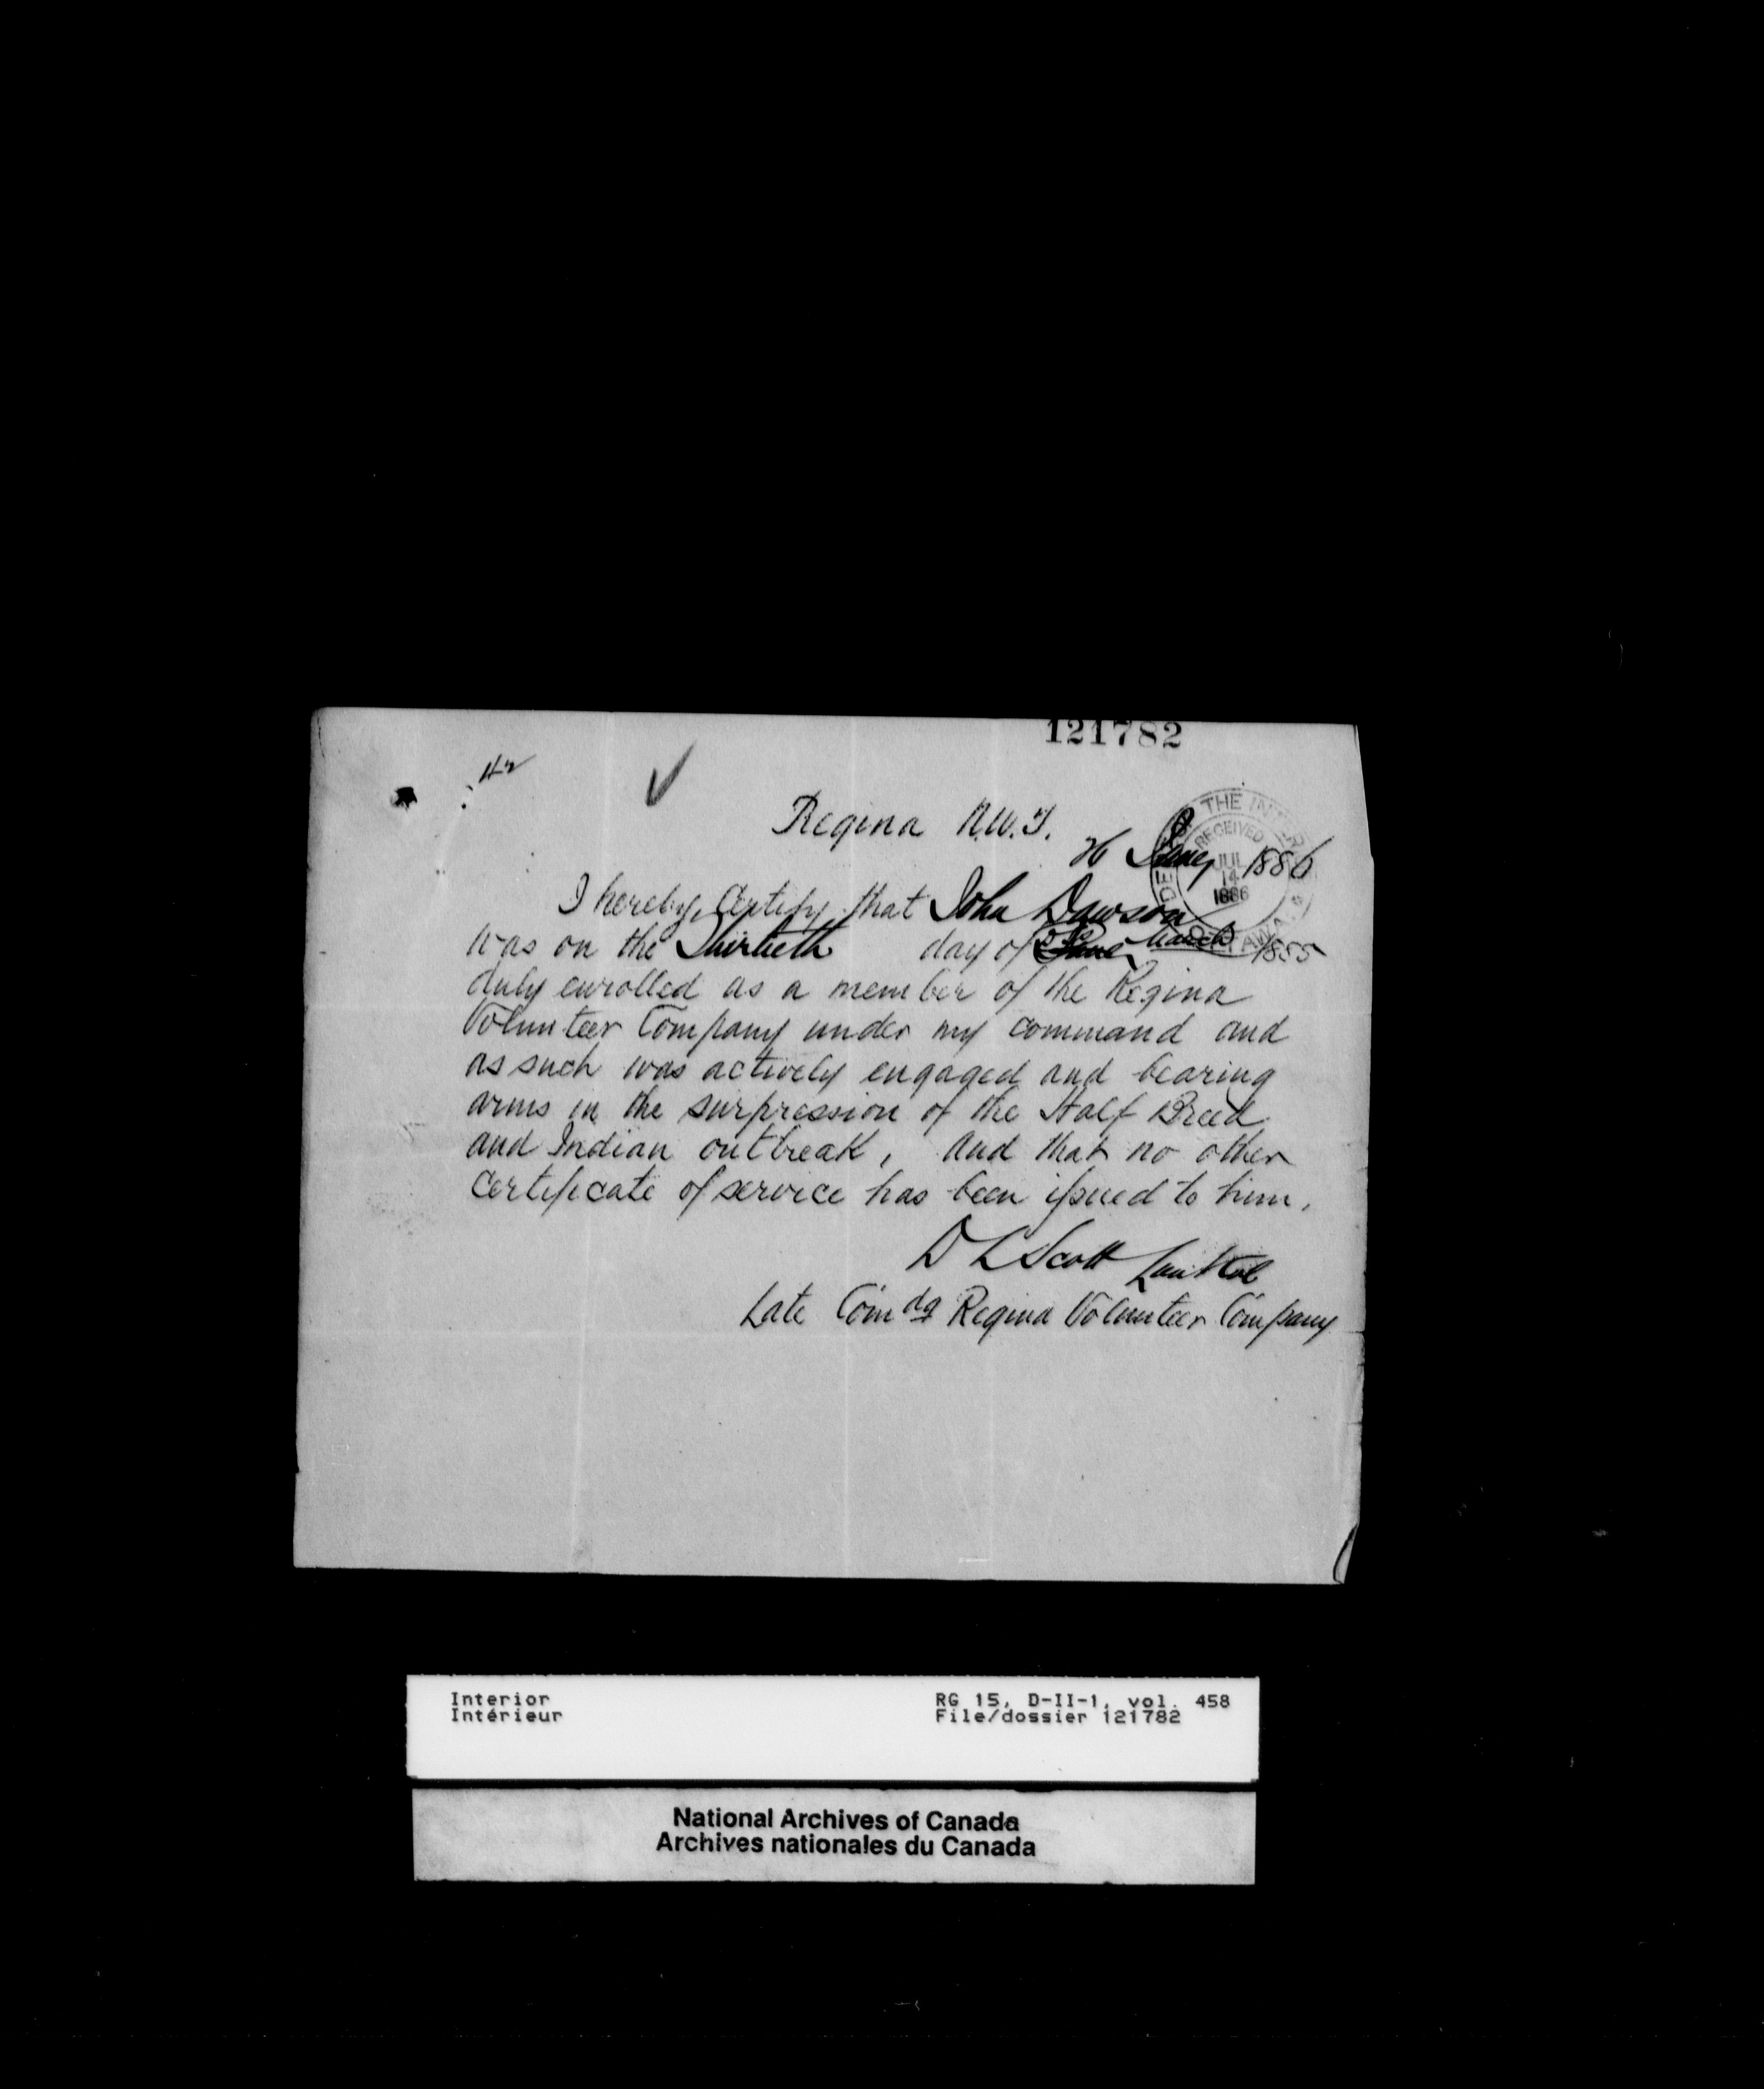 121782
Regina N.W.T.
26 June 1886
THE INTERIOR
RECEIVED
JUL
14
1886
OTTAWA
I hereby Certify that John Dawson
was on the Thirtieth day of June March 1885
duly enrolled as a member of the Regina
Volunteer Company under my command and
as such was actively engaged and bearing
arms in the surpression of the Half Breed
and Indian outbreak, and that no other
Certificate of service has been issued to him.
D L Scott
Late Comdg Regina Volunteer Company
Interior
Intérieur
RG 15, D-II-1, vol. 458
File/dossier 121782
National Archives of Canada
Archives nationales du Canada